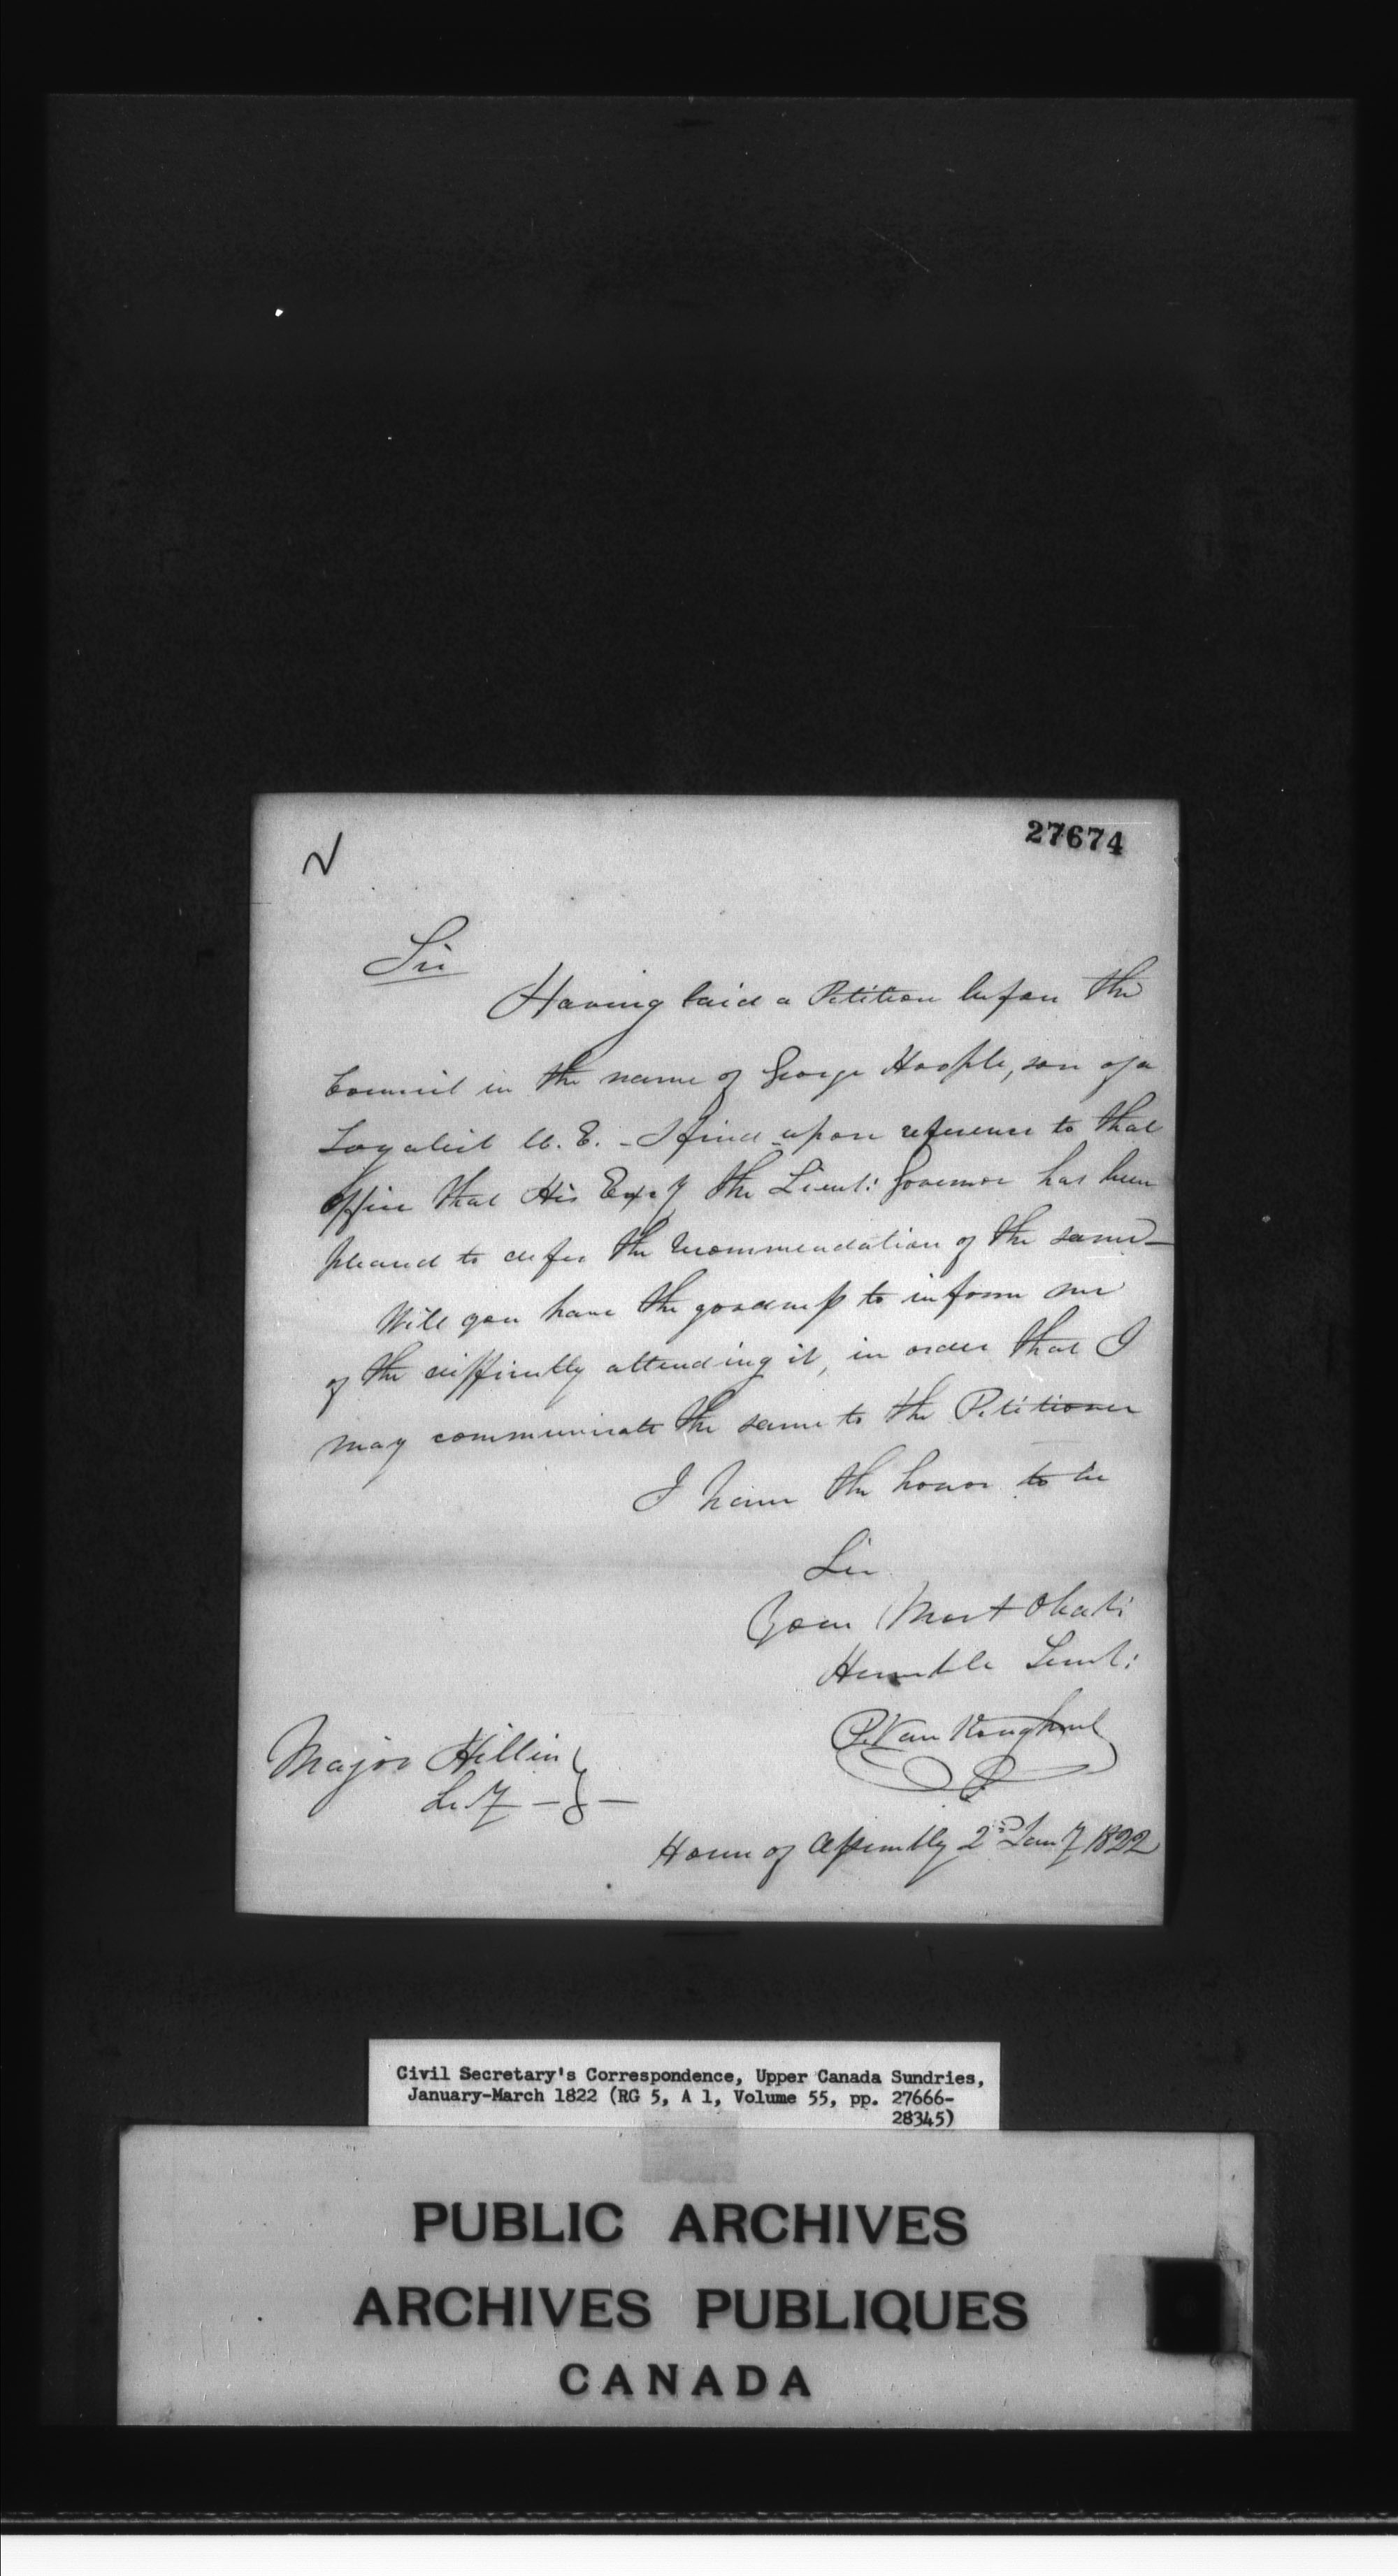 27674
Sir
Having laid a Petition before the
Council in the name of George Hoople, son of a
Loyalist U. E. - I find upon reference to that
Office that His Excy the Lieut: Governor has been
pleased to defer the recommendation of the same—
Will you have the goodness to inform me
of the difficulty attending it, in order that I
may communicate the same to the Petitioner
I have the honor to be
Sir
Your Most Obedt:
Humble Servt:
P. VanKoughnet
Major Hillier
House of Assembly 2nd Jany 1822
Civil Secretary's Correspondence, Upper Canada Sundries,
January-March 1822 (RG 5, A 1, Volume 55, pp. 27666-
28345)
PUBLIC ARCHIVES
ARCHIVES PUBLIQUES
CANADA